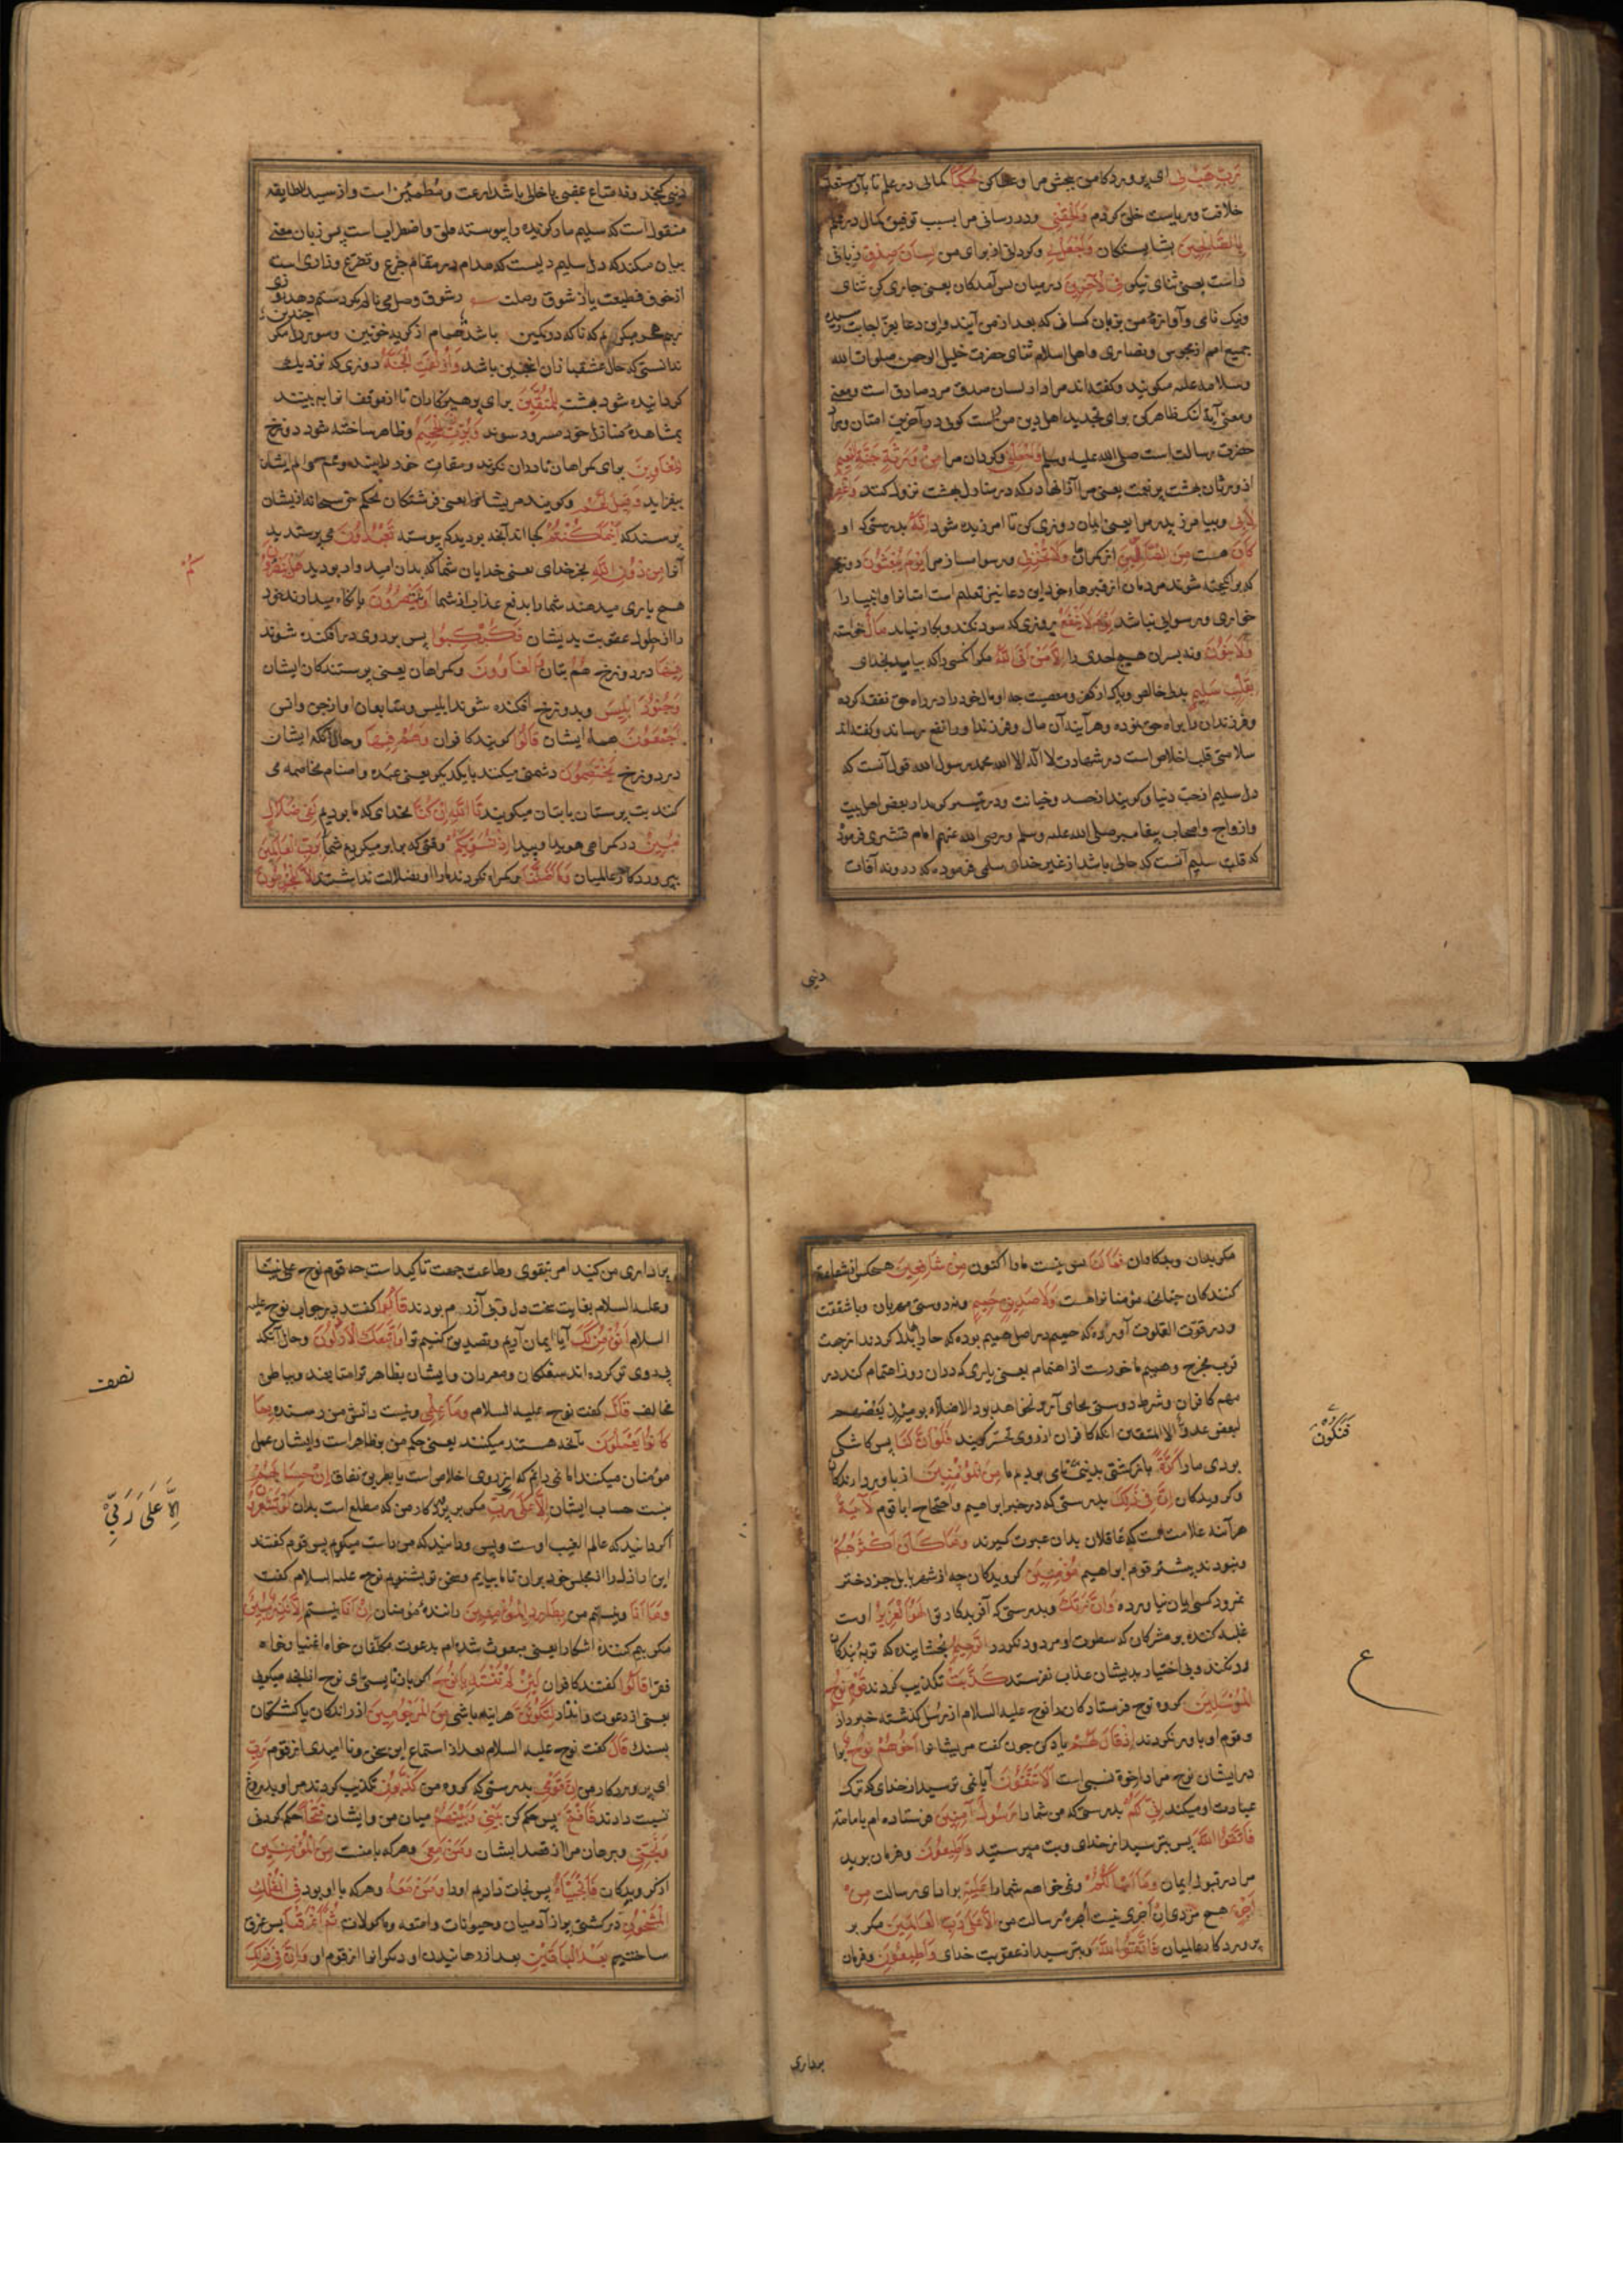 رَبِّ هَبْ لِی ای پروردکار من ببخش مرا وعطاکن حُكْمًا کمالی در علم تا بدان مستعد
خلافت وریاست خلق کردم وَأَلْحِقْنِی ودر رسانی مرا بسبب توفیق کمال در علم
بِالصَّالِحِينَ بشایستکان وَاجْعَلْ لِی وکردان از برای من لِسَانَ صِدْقٍ زبانی
راست یعنی ثنای نیکو فِی الْآخِرِينَ در میان پس آمدکان یعنی جاری کن ثنای
ونیک نامی وآوازهٔ من بر زبان کسانی که بعد از من آیند واین دعا بعز اجابت رسیده
جمیع امم از مجوس ونصاری واهل اسلام ثنای حضرت خلیل الرحمن صلوات الله
وسلامه علیه میکویند وکفته‌اند مراد از لسان صدق مرد صادق است ومعنی
ومعنی آیه آنک ظاهر کن برای تجدید اصل دین من راست کوی در آخرین امتان و
حضرت رسالت است صلی الله علیه وسلم وَاجْعَلْنِی وکردان مرا مِنْ وَرَثَةِ جَنَّةِ النَّعِيمِ
از وارثان بهشت پر نعمت یعنی مرا از آنها که در منازل بهشت نزول کنند وَاغْفِرْ
لِأَبِی وبیامرز پدر مرا یعنی ایمان روزی کن تا آمرزیده شود إِنَّهُ بدرستی که او
كَانَ هست مِنَ الضَّالِّينَ از کمراهان وَلَا تُخْزِنِی ورسوا مساز مرا يَوْمَ يُبْعَثُونَ روزی
که برانکیخته شوند مردمان از قبرهاء خود این دعا نیز تعلیم است امتانرا وانبیا را
خواری ورسوایی نباشد يَوْمَ لَا يَنْفَعُ روزی که سود نکند وبکار نیاید مَالٌ خواسته
وَلَا بَنُونَ ونه پسران هیچ احدی را إِلَّا مَنْ أَتَى اللَّهَ مکر آنکسی را که بیاید بخدای
بِقَلْبٍ سَلِيمٍ بدلی خالص وپاک از کفر ومعصیت چه او مال خود را در راه حق نفقه کرده
وفرزندان را براه حق نموده وهر آینه آن مال وفرزندان او را نفع رساند وکفته‌اند
سلامتی قلب اخلاص است در شهادت لا اله الا الله محمد رسول الله قول آنست که
دل سلیم از حب دنیا وکویند از حسد وخیانت ودر تیسیر کوید از بغض اهل بیت
وازواج واصحاب پیغامبر صلی الله علیه وسلم ورضی الله عنهم امام قشیری فرمود
که قلب سلیم آنست که خالی باشد از غیر خدای سلمی فرموده که در وند آفات
دنیی
دنیی کنجد ونه متاع عقبی یا خالی باشد از بدعت ومطمئن است واز سید الطایفه
منقول است که سلیم مار کزیده را پیوسته قلق واضطراب است پس زبان معنی
بیان میکند که دل سلیم دلیست که مدام در مقام جزع وتضرع وزاری است
از خوف قطیعت یا از شوق وصلت
ندانستی که حال عشقبازان اینچنین باشد وَأُزْلِفَتِ الْجَنَّةُ روزی که نزدیک
کردانیده شود بهشت لِلْمُتَّقِينَ برای پرهیزکاران تا از موقف انرا به بینند
بمشاهدهٔ منازل خود مسرور شوند وَبُرِّزَتِ الْجَحِيمُ وظاهر ساخته شود دوزخ
لِلْغَاوِينَ برای کمراهان تا دران نکرند ومقامات خود را بینند وغم و الم ایشان
بیفزاید وَقِيلَ لَهُمْ وکویند مر ایشانرا یعنی فرشتکان بحکم حق سبحانه از ایشان
پرسند که أَيْنَمَا كُنْتُمْ کجا اند آنچه بودید که پیوسته تَعْبُدُونَ می پرستیدید
آنرا مِنْ دُونِ اللَّهِ بجز خدای یعنی خدایان شما که بدان امیدوار بودید هَلْ يَنْصُرُونَ
كُمْ
هیچ یاری میدهند شما را بدفع عذاب از شما أَوْ يَنْتَصِرُونَ یا نکاه میدارند خود
را از حلول عقوبت بدیشان فَكُبْكِبُوا پس بروی در افکنده شوند
فِيهَا در دوزخ هُمْ بتان وَالْغَاوُونَ وکمراهان یعنی پرستندکان ایشان
وَجُنُودُ إِبْلِيسَ وبدوزخ افکنده شوند ابلیس ومتابعان او از جن وانس
أَجْمَعُونَ همهٔ ایشان قَالُوا کویند کافران وَهُمْ فِيهَا وحال آنکه ایشان
در دوزخ يَخْتَصِمُونَ دشمنی میکنند با یکدیکر یعنی عبده واصنام مخاصمه می
کنند بت پرستان با بتان میکویند تَاللَّهِ إِنْ كُنَّا بخدای که ما بودیم لَفِی ضَلَالٍ
مُبِينٍ در کمراهی هویدا وپیدا إِذْ نُسَوِّيكُمْ وقتی که برابر میکردیم شما را بِرَبِّ الْعَالَمِينَ
بپروردکار عالمیان وَمَا أَضَلَّنَا وکمراه نکردند ما را وبضلالت نداشتند إِلَّا الْمُجْرِمُونَ
مکر بدان وبدکاران فَمَا لَنَا پس نیست ما را اکنون مِنْ شَافِعِينَ هیچکس از شفاعت
کنندکان چنانچه مؤمنانرا هست وَلَا صَدِيقٍ حَمِيمٍ ونه دوستی مهربان وبا شفقت
ودر قوت القلوب آورده که حمیم در اصل همیم بوده که حا را بدل کردند از جهت
قرب مخرج وهمیم ماخوذست از اهتمام یعنی یاری که دران روز اهتمام کند در
مهم کافران وشرط دوستی بجای آرد ونخواهد بود الاخلاء یومئذ بعضهم
لبعض عدو الا المتقین آنکه کافران از روی تحسر کویند فَلَوْ أَنَّ لَنَا پس کاشکی
فَنَكُونَ
بودی ما را كَرَّةً بازکشتی بدنیا تا می بودیم ما مِنَ الْمُؤْمِنِينَ از باوردارندکان
وکرویدکان إِنَّ فِی ذَلِكَ بدرستی که در خبر ابراهیم واحتجاج او با قوم لَآيَةً
هر آینه علامت است که عاقلان بدان عبرت کیرند وَمَا كَانَ أَكْثَرُهُمْ
ونبودند بیشتر قوم ابراهیم مُؤْمِنِينَ کرویدکان چه از شهر بابل جز دختر
نمرود کسی ایمان نیاورده وَإِنَّ رَبَّكَ وبدرستی که آفریدکار تو لَهُوَ الْعَزِيزُ اوست
غلبه کننده بر مشرکان که سطوت او مردود نکردد الرَّحِيمُ بخشاینده که توبه بندکان
رد نکند وبی اختیار بدیشان عذاب نفرستد كَذَّبَتْ تکذیب کردند قَوْمُ نُوحٍ
ع
الْمُرْسَلِينَ کروه نوح فرستادکان را نوح علیه السلام از رسل کذشته خبر داد
وقوم او باور نکردند إِذْ قَالَ لَهُمْ یاد کن چون کفت مر ایشانرا أَخُوهُمْ نُوحٌ برا
در ایشان نوح مراد اخوة نسبی است أَلَا تَتَّقُونَ آیا نمی ترسید از خدای که ترک
عبادت او میکنید إِنِّی لَكُمْ بدرستی که من شما را رَسُولٌ أَمِينٌ فرستاده ام با امانة
فَاتَّقُوا اللَّهَ پس بترسید از خدای وبت مپرستید وَأَطِيعُونِ وفرمان برید
مرا در قبول ایمان وَمَا أَسْأَلُكُمْ ونمیخواهم شما را عَلَيْهِ برادای رسالت مِنْ
أَجْرٍ هیچ مزدی إِنْ أَجْرِيَ نیست اجرهٔ رسالت من إِلَّا عَلَى رَبِّ الْعَالَمِينَ مکر بر
پروردکار عالمیان فَاتَّقُوا اللَّهَ وبترسید از عقوبت خدای وَأَطِيعُونِ وفرمان
برداری
برداری من کنید امر بتقوی وطاعت جهت تاکید است چه قوم نوح علی نبینا
وعلیه السلام بغایت سخت دل وقبی آزرم بودند قَالُوا کفتند در جواب نوح علیه
السلام أَنُؤْمِنُ لَكَ آیا ایمان آریم وتصدیق کنیم ترا وَاتَّبَعَكَ الْأَرْذَلُونَ وحال آنکه
پی روی تو کرده اند سفلکان ومفردان وایشان بظاهر ترا متابعند وبباطن
نصف
مخالف قَالَ کفت نوح علیه السلام وَمَا عِلْمِی ونیست دانش من رسنده بِمَا
كَانُوا يَعْمَلُونَ بآنچه هستند میکنند یعنی حکم من بر ظاهر است وایشان عمل
مؤمنان میکنند اما نمی دانم که از روی اخلاص است یا بطریق نفاق إِنْ حِسَابُهُمْ
نیست حساب ایشان إِلَّا عَلَى رَبِّی مکر بر پروردکار من که مطلع است بدان لَوْ تَشْعُرُونَ
إِلَّا عَلَى رَبِّي
اکر دانید که عالم الغیب اوست وبس ودانید که من راست میکویم پس قوم کفتند
این اراذل را از مجلس خود بران تا ما بیاییم وسخن تو بشنویم نوح علیه السلام کفت
وَمَا أَنَا ونیستم من بِطَارِدِ الْمُؤْمِنِينَ رانندهٔ مؤمنان إِنْ أَنَا نیستم إِلَّا نَذِيرٌ مُبِينٌ
مکر بیم کنندهٔ آشکارا یعنی مبعوث شده ام بدعوت مکلفان خواه اغنیا وخواه
فقرا قَالُوا کفتند کافران لَئِنْ لَمْ تَنْتَهِ يَا نُوحُ اکر باز نایستی ای نوح از آنچه میکویی
یعنی از دعوت وانذار لَتَكُونَنَّ هر آینه باشی مِنَ الْمَرْجُومِينَ از راندکان یا کشتکان
بسنک قَالَ کفت نوح علیه السلام بعد از استماع این سخن ونا امیدی از قوم رَبِّ
ای پروردکار من إِنَّ قَوْمِی بدرستی که کروه من كَذَّبُونِ تکذیب کردند مرا وبدروغ
نسبت دادند فَافْتَحْ پس حکم کن بَيْنِی وَبَيْنَهُمْ میان من وایشان فَتْحًا حکم کردنی
وَنَجِّنِی وبرهان مرا از قصد ایشان وَمَنْ مَعِیَ وهرکه با منست مِنَ الْمُؤْمِنِينَ
از کرویدکان فَأَنْجَيْنَاهُ پس نجات دادیم او را وَمَنْ مَعَهُ وهرکه با او بود فِی الْفُلْكِ
الْمَشْحُونِ در کشتی پر از آدمیان وحیوانات وامتعه وماکولات ثُمَّ أَغْرَقْنَا پس غرق
ساختیم بَعْدُ الْبَاقِينَ بعد از رهانیدن او دیکرانرا از قوم او إِنَّ فِی ذَلِكَ